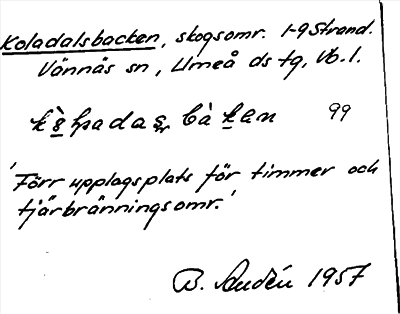 Koladalsbacken, skogsomr. 1-9 Strand.
Vännäs sn, Umeå ds tg, Vb. l.
99
'Förr upplagsplats för timmer och
tjärbränningsomr.'
B. 1957